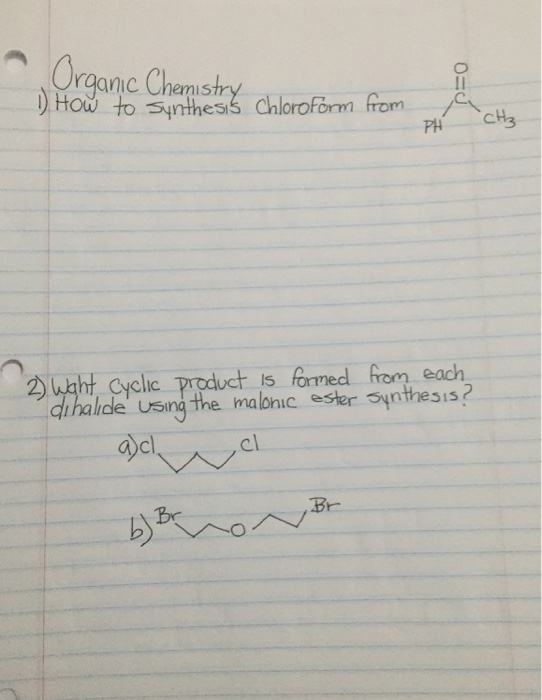 Organic Chemistry
1) How to synthesis Chloroform from
O
C
PH
CH3
2) Waht cyclic product is formed from each
dihalide using the malonic ester synthesis?
a) Cl Cl
b) Br O Br